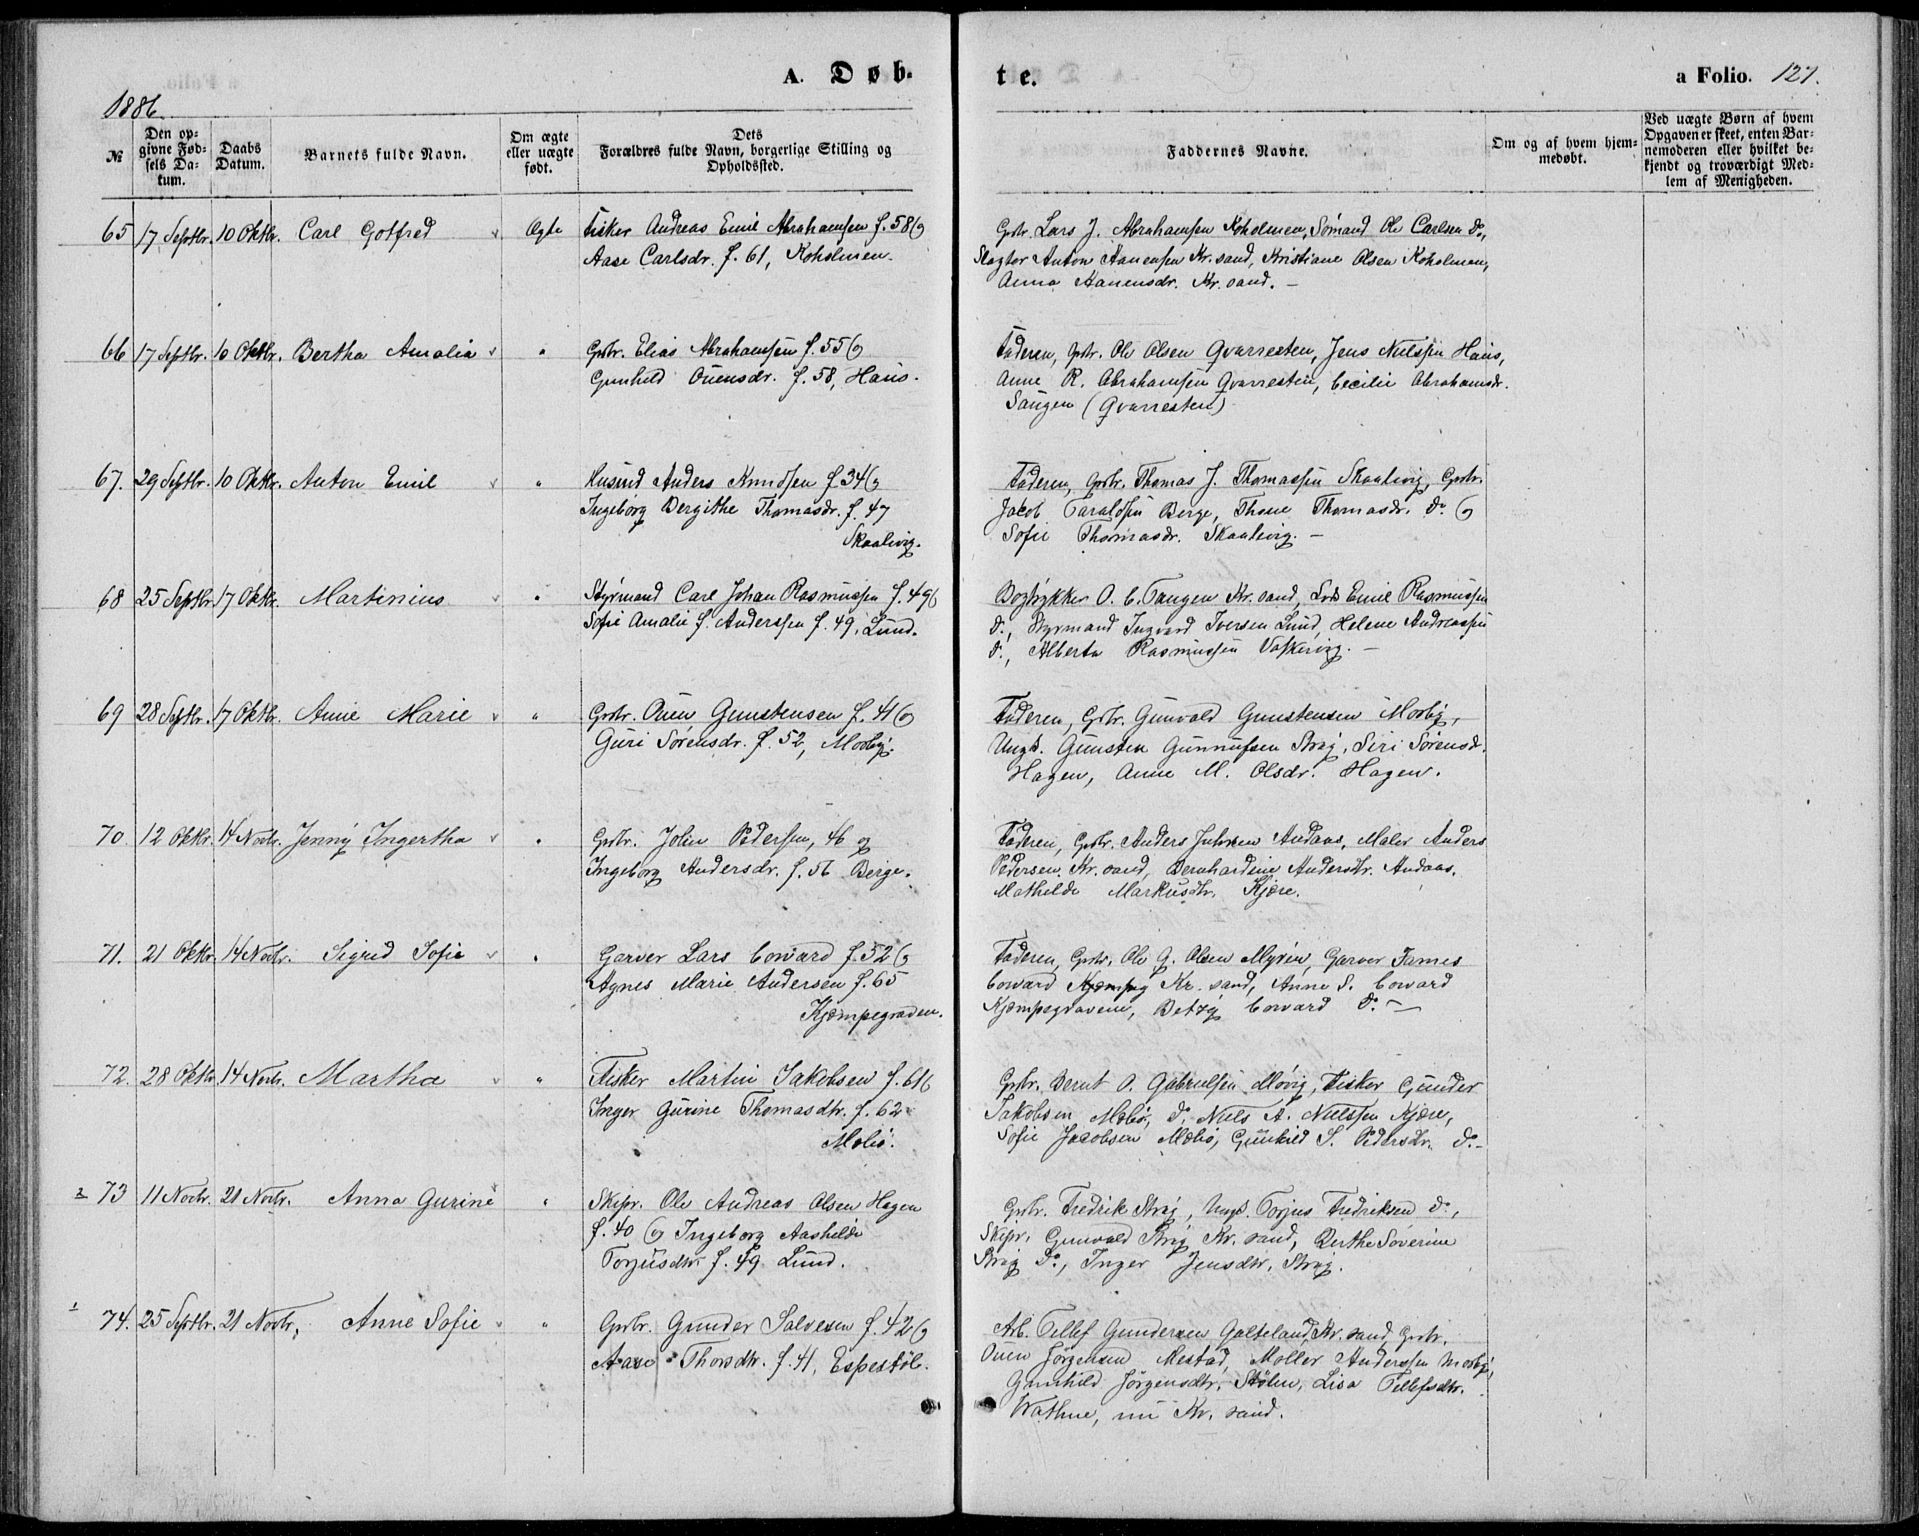 A. Døb-
te.
a Folio. 127.
1886.
№
Den op-
givne Fød-
sels Da-
tum.
Daabs
Datum.
Barnets fulde Navn.
Om ægte
eller uægte
født.
Dets
Forældres fulde Navn, borgerlige Stilling og
Opholdssted.
Faddernes Navne.
Om og af hvem hjem-
medøbt.
Ved uægte Børn af hvem
Opgaven er skeet, enten Bar-
nemoderen eller hvilket be-
kjendt og troværdigt Med-
lem af Menigheden.
65 17 Septbr. 10 Oktbr. Carl Gotfred Ægte Fisker Andreas Emil Abrahamsen f. 58 og
Aase Carlsdr. f. 61, Koholmen.
Grbr. Lars J. Abrahamsen Koholmen, Sømand Ole Carlsen Do.,
Slagter Anton Hanensen Kr.sand, Kristiane Olsen Koholmen,
Anna Hanensdr. Kr.sand. –
66 17 Septbr. 10 Oktbr. Bertha Amalia " Grbr. Elias Abrahamsen f. 55 og
Gunhild Ouensdr. f. 58, Haus.
Faderen, Grbr. Ole Olsen Qvarresten, Jens Nielssen Haus,
Anne R. Abrahamsen Qvarresten, Cecilie Abrahamsdr.
Saugen (Qvarresten)
67. 29 Septbr. 10 Oktbr. Anton Emil " Husmd Anders Knudsen f. 34 og
Ingeborg Bergithe Thomasdr. f. 47
Skaalevig.
Faderen, Grbr. Thomas J. Thomassen Skaalevig, Grbr.
Jacob Taraldsen Berge, Thone Thomasdr. Do. og
Sofie Thomasdr. Skaalevig. –
68 25 Septbr. 17 Oktbr. Martinius " Styrmand Carl Johan Rasmussen f. 49 og
Sofie Amalie f. Anderssen f. 49, Lund.
Bogtrykker O. C. Tangen Kr.sand, Lods Emil Rasmussen
Do., Styrmand Ingvard Iversen Lund, Helene Andreassen
Do., Alberta Rasmussen Vaskevig. –
69 28 Septbr. 17 Oktbr. Anne Marie " Grbr. Ouen Gunstensen f. 41 og
Guri Sørensdr. f. 52, Mosby.
Faderen, Grbr. Gunvald Gunstensen Mosby,
Ungk. Gunsten Gunnufsen Strøj, Siri Sørensd.
Hagen, Anne M. Olsdr. Hagen.
70 12 Oktbr. 14 Novbr. Jenny Ingertha " Grbr. John Pedersen, 46 og
Ingeborg Andersdr. f. 56 Berge.
Faderen, Grbr. Anders Johnsen Andaas, Maler Anders
Pedersen Kr.sand, Bernhardine Andersdtr. Andaas,
Mathilde Markusdtr. Kjære.
71. 21 Oktbr. 14 Novbr. Sigrid Sofie " Garver Lars Coward f. 52 og
Agnes Marie Andersen f. 65
Kjæmpegraven.
Faderen, Grbr. Ole G. Olsen Myren, Garver James
Coward Kr.sand, Anne S. Coward
Kjæmpegravene, Betzy Coward Do. –
72. 28 Oktbr. 14 Novbr. Martha " Fisker Martin Jakobsen f. 61 og
Inger Gurine Thomasdtr. f. 62
Mebø.
Grbr. Bernt O. Gabrielsen Møvig, Fisker Gunder
Jakobsen Mebø, Do. Niels A. Nielssen Kjære,
Sofie Jacobsen Mebø, Gunhild S. Pedersdtr. Do. –
2 73 11 Novbr. 21 Novbr. Anna Gurine " Skipr. Ole Andreas Olsen Hagen
f. 40 og Ingeborg Aashilde
Torjusdtr. f. 49 Lund.
Grbr. Fredrik Strøj, Ungk. Torjus Fredriksen Do.,
Skipr. Gunvald Strøj Kr.sand, Berthe Soverine
Strøj Do., Inger Jensdtr. Strøj.
1 74. 25 Septbr. 21 Novbr. Anne Sofie " Grbr. Gunder Salvesen f. 42 og
Aase Thorsdtr. f. 41, Espestøl.
Arb. Tellef Gundersen Galteland, Kr.sand, Grbr.
Ouen Jørgensen Mestad, Møller Anderssen Mosby,
Gunhild Jørgensdtr. Stølen, Lisa Tellefsdtr.
Wathne, nu Kr.sand.